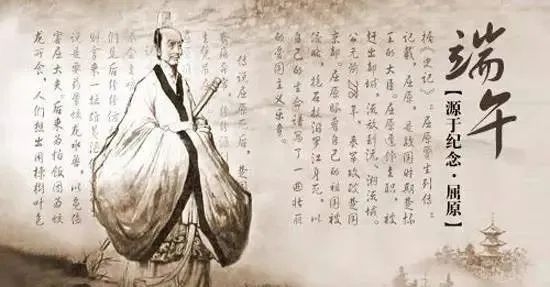 端午
【源于纪念·屈原】
据《史记》:屈原贾生列传:
记载,屈原,是战国时期楚怀
王的大臣。屈原遭馋去职,被
赶出都城,流放到沅、湘流域。
公元前278年,秦军攻破楚国
京都。屈原眼看自己的祖国被
侵略,抱石投汨罗江身死,以
自己的生命谱写了一曲壮丽
的爱国主义乐章。
传说屈原死后,楚国
则拿来一坛雄黄
说是要药晕蛟龙水兽,以免伤
害屈大夫。后来为怕饭团为蛟
龙可食,人们想出用楝树叶包